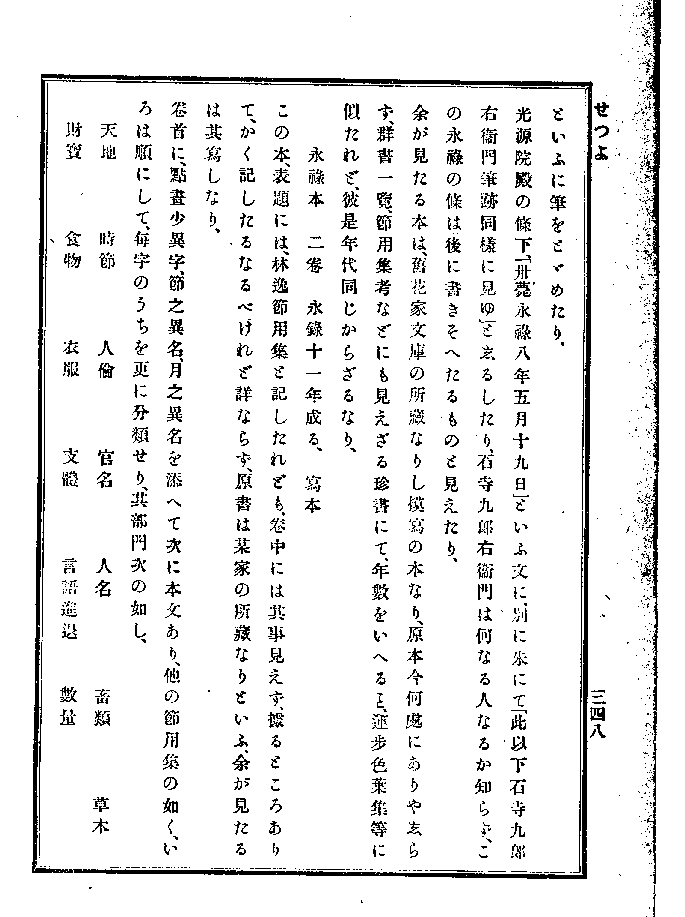 せつよ
三四八
といふに筆をとゞめたり、
光源院殿の條下、「毗薨永祿八年五月十九日」といふ文に、別に朱にて「此以下石寺九郎
右衞門筆跡同樣に見ゆ」とゑるしたり、石寺九郎右衞門は何なる人なるか知らず、こ
の永祿の條は後に書きそへたるものと見えたり、
余が見たる本は、舊花家文庫の所藏なりし摸寫の本なり、原本今何處にありや、ゑら
ず、群書一覽、節用集考などにも見えざる珍書にて、年數をいへると、運步色葉集等に
似たれど、彼是年代同じからざるなり、
永祿本　二卷　永錄十一年成る、　寫本
この本、表題には、林逸節用集と記したれども、卷中には其事見えず、據るところあり
て、かく記したるなるべけれど詳ならず、原書は某家の所藏なりといふ、余が見たる
は其寫しなり、
卷首に、點畫少異字、節之異名、月之異名を添へて次に本文あり、他の節用集の如く、い
ろは順にして、每字のうちを更に分類せり、其部門次の如し、
天地　時節　人倫　官名　人名　畜類　草木
財寶　食物　衣服　支體　言語進退　數量